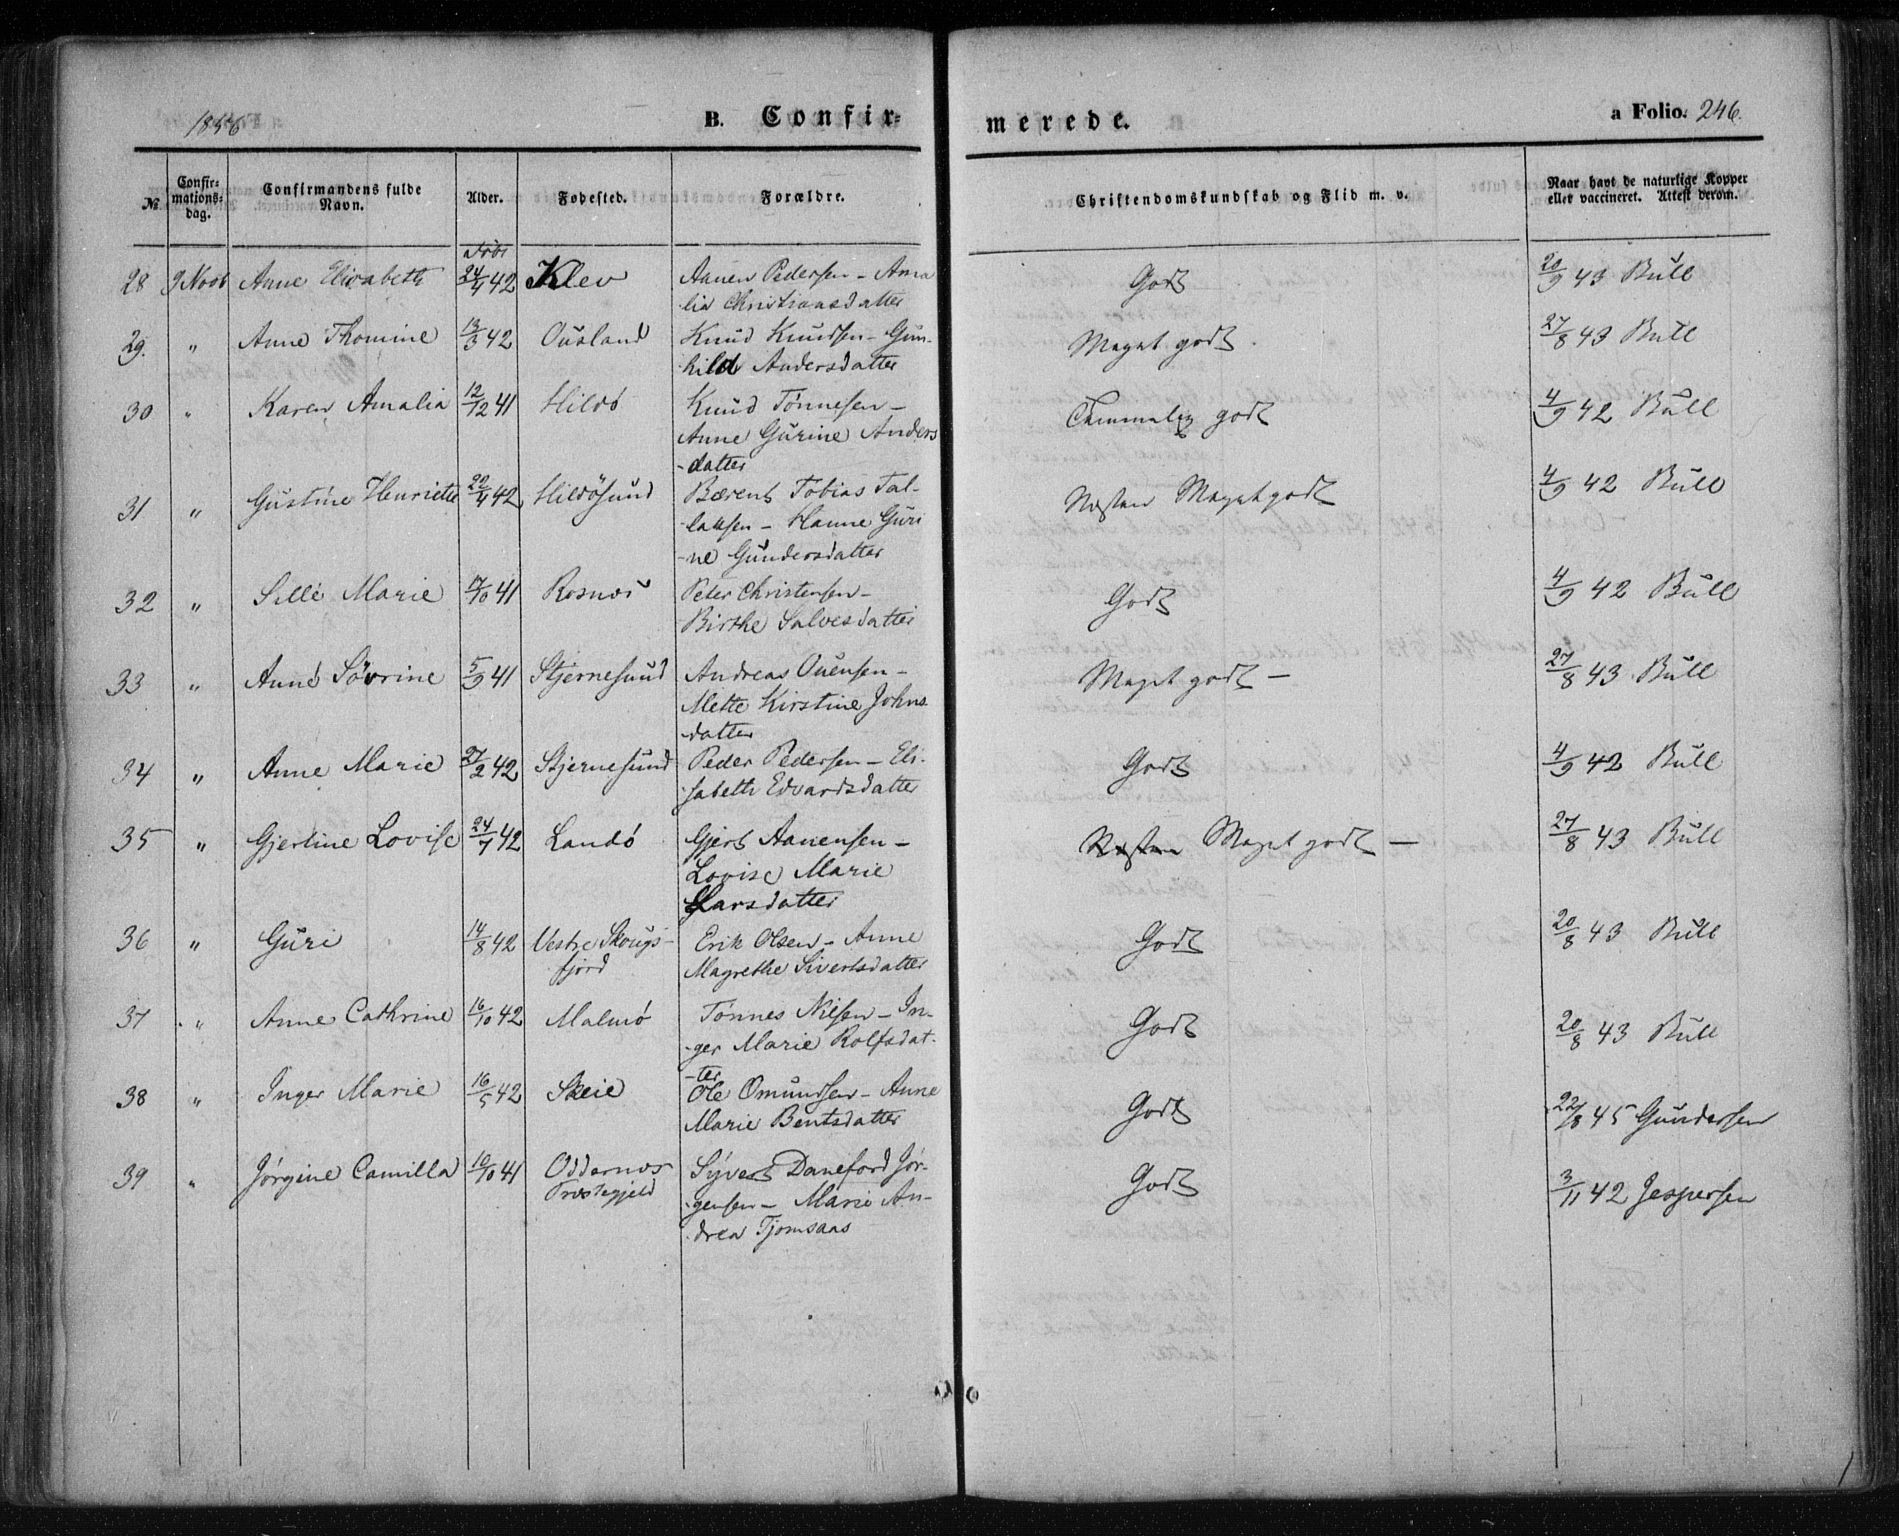 1856 B. Confirmerede. a Folio. 246.
№ Confirmations-dag. Confirmandens fulde Navn. Alder. Fødested. Forældre. Christendomskundskab og Flid m. v. Naar havt de naturlige Kopper eller vaccineret. Attest derom.
28 9 Novb Anne Elisabeth Født 24/4 42 Klev Aanen Pedersen – Ama
lia Christiansdatter Godt 20/9 43 Bull
29. " Anne Thomine 13/3 42 Ousland Knud Knudsen – Gun-
hild Andersdatter Meget godt. 27/8 43 Bull
30 " Karen Amalia 12/12 41 Hillø Knud Tønnesen –
Anne Gurine Anders
-datter Temmelig godt 4/9 42 Bull
31 " Gustine Henriette 20/4 42 Hilløsund Bærent Tobias Tal-
laksen – Hanne Guri
-ne Gundersdatter Næsten Meget godt 4/9 42 Bull
32 " Sille Marie 17/10 41 Rosnæs Peter Christensen –
Birthe Salvesdatter Godt 4/9 42 Bull
33 " Anne Sövrine 5/9 41 Stjernesund Andreas Ouensen –
Mette Kirstine Johns
-datter Meget godt – 27/8 43 Bull
34 " Anne Marie 27/2 42 Stjernesund Peder Pedersen – Eli-
sabeth Edvardsdatter Godt 4/9 42 Bull
35 " Gjertine Lovise 24/7 42 Landø Gjert Aanensen –
Lovise Marie
Larsdatter Næsten Meget godt – 27/8 43 Bull
36 " Guri 14/8 42 Vestre Skougs-
fjord Erik Olsen – Anne
Magrethe Sivertsdatter Godt 20/8 43 Bull
37 " Anne Cathrine 16/10 42 Malmø Tønnes Nilsen – In-
ger Marie Rolfsdat-
-ter Godt 20/8 43 Bull
38 " Inger Marie 16/5 42 Skeie Ole Omundsen – Anne
Marie Bentsdatter Godt 22/8 45 Gundersen
39 " Jørgine Camilla 10/10 41 Oddernæs
Præstegjeld Syvert Daneford Jør-
gensen – Marie An-
drea Tjomsaas Godt 3/11 42 Jespersen